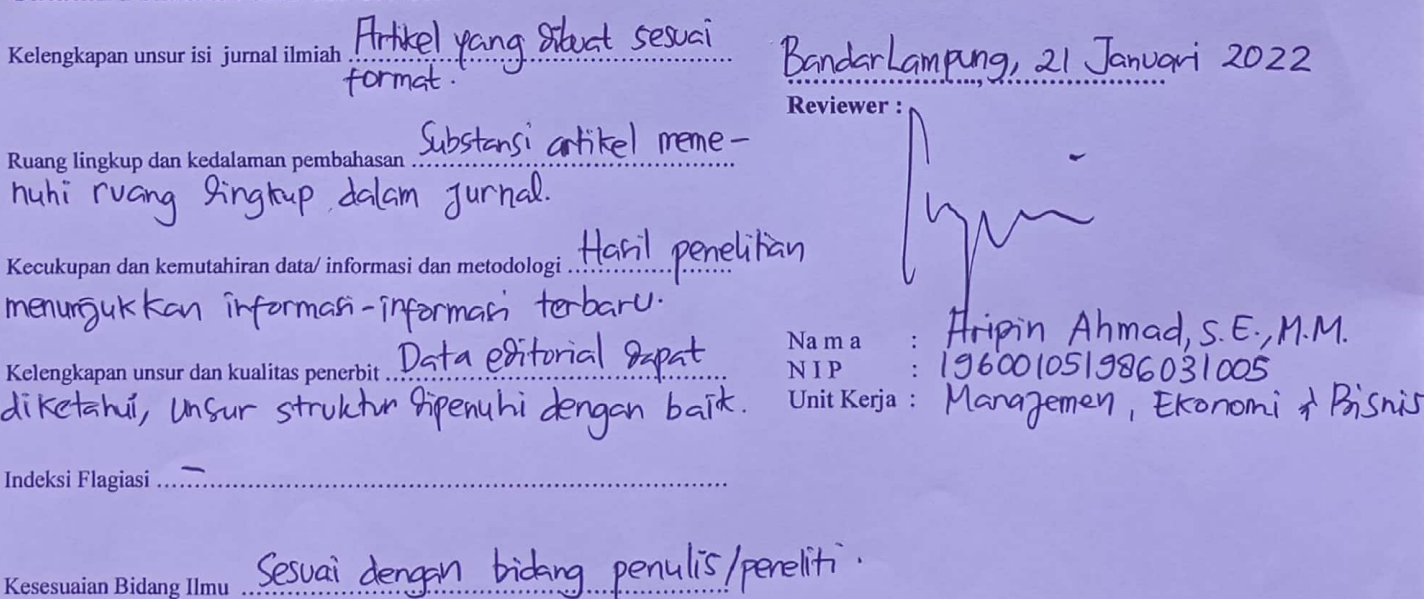 Kelengkapan unsur isi jurnal ilmiah Artikel yang dibuat sesuai
format.
Ruang lingkup dan kedalaman pembahasan Substansi artikel meme-
nuhi ruang lingkup dalam jurnal.
Kecukupan dan kemutahiran data/ informasi dan metodologi Hasil penelitian
menunjukkan informasi-informasi terbaru.
Kelengkapan unsur dan kualitas penerbit Data editorial dapat
diketahui, unsur struktur dipenuhi dengan baik.
Indeksi Flagiasi -
Kesesuaian Bidang Ilmu Sesuai dengan bidang penulis/peneliti.
Bandar Lampung, 21 Januari 2022
Reviewer :
Na m a : Aripin Ahmad, S.E., M.M.
N I P : 196001051986031005
Unit Kerja : Manajemen, Ekonomi & Bisnis